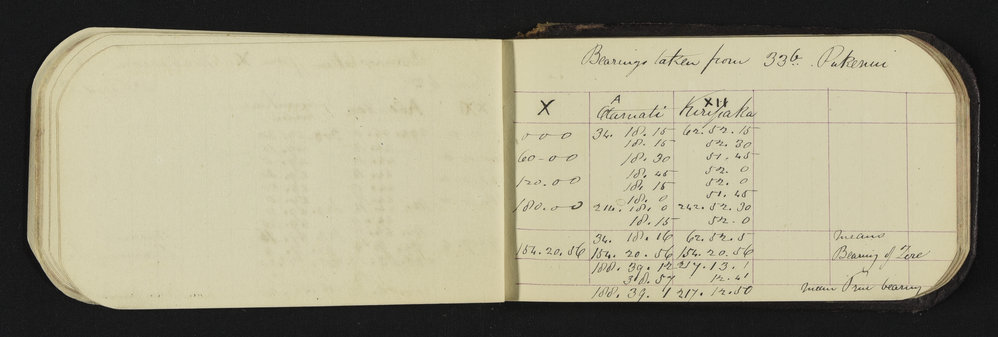 Bearings taken from 33b. Pukenui
X A XII
Otamati Kiripaka
0 0 0 34. 18. 15 62. 52. 15
18. 15 52. 30
60-00 18. 30 51. 45
18. 45 52. 0
120.00 18. 15 52. 0
18. 0 51. 45
180.00 214. 18. 0 242. 52. 30
18. 15 52. 0
34. 18. 16 62. 52. 5 means
154. 20. 56 154. 20. 56 154. 20. 56 Bearing of Zero
188. 39. 12 217. 13. 1
38. 57 12. 41
188. 39. 4 217. 12. 50 mean True bearing